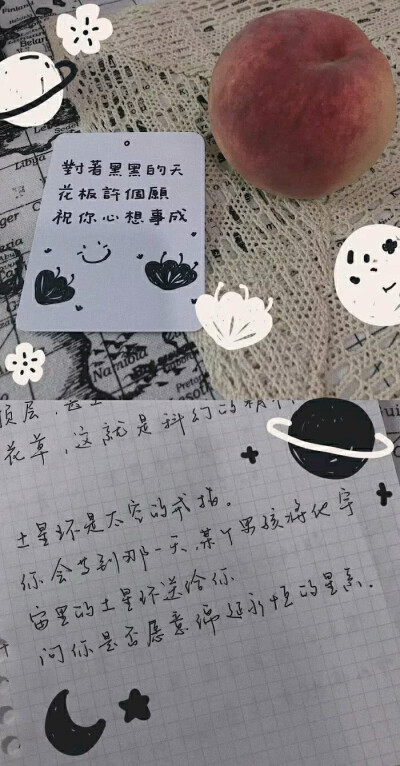 Finland
Belar
Libya
Niger
Namibia
對著黑黑的天
花板許個願
祝你心想事成
花草,这就是科幻的精
土星环是太空的戒指。
你会等到那一天,某个男孩将他宇
宙里的土星环送给你
问你是否愿意绵延永恒的星系.